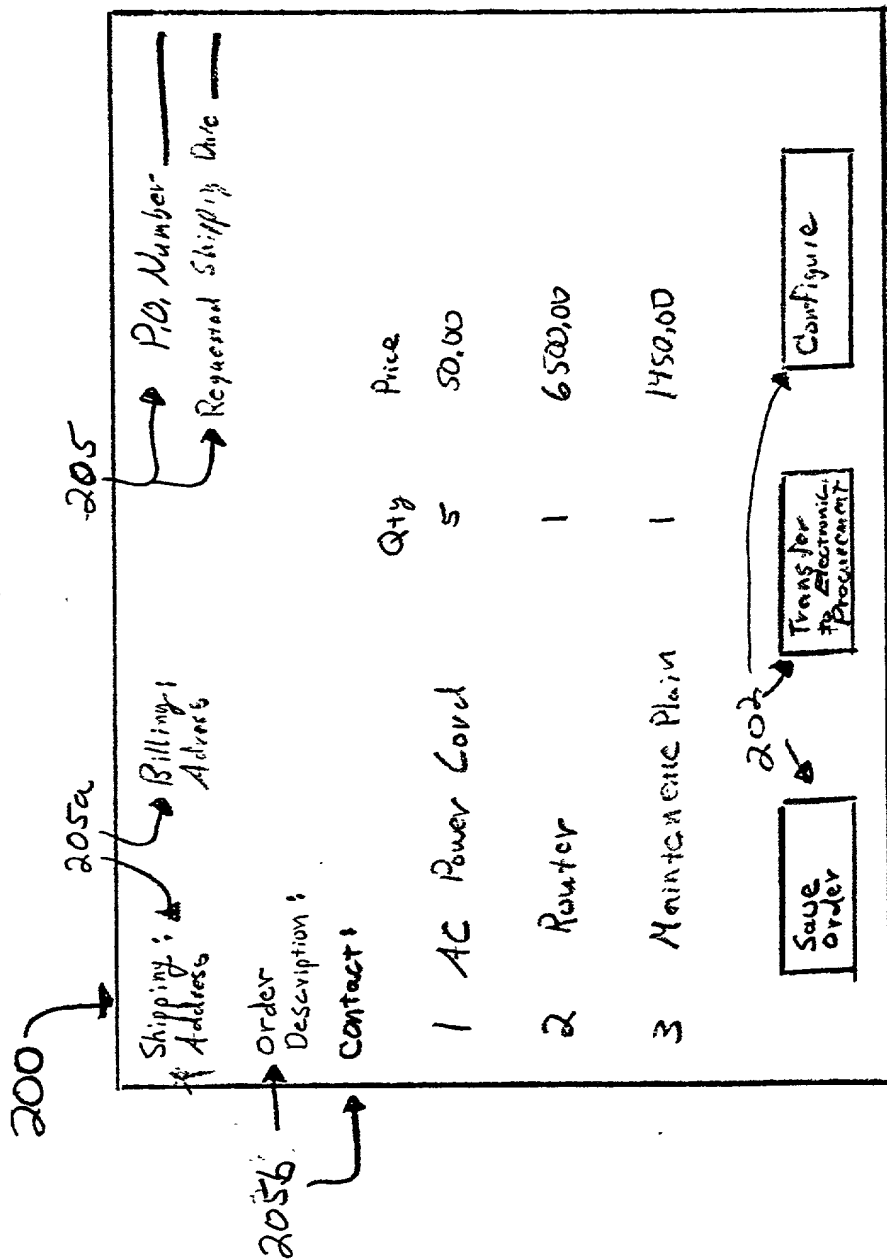 200
205a
205
Shipping:
Address
Billing:
Adress
P.O. Number
Requested Shipping Date
205b
Order
Description:
Contact:
Qty Price
1 AC Power Cord 5 50.00
2 Router 1 6500.00
3 Maintenence Plain 1 1450.00
202
Save
Order
Transfer
to Electronic
Procurement
Configure